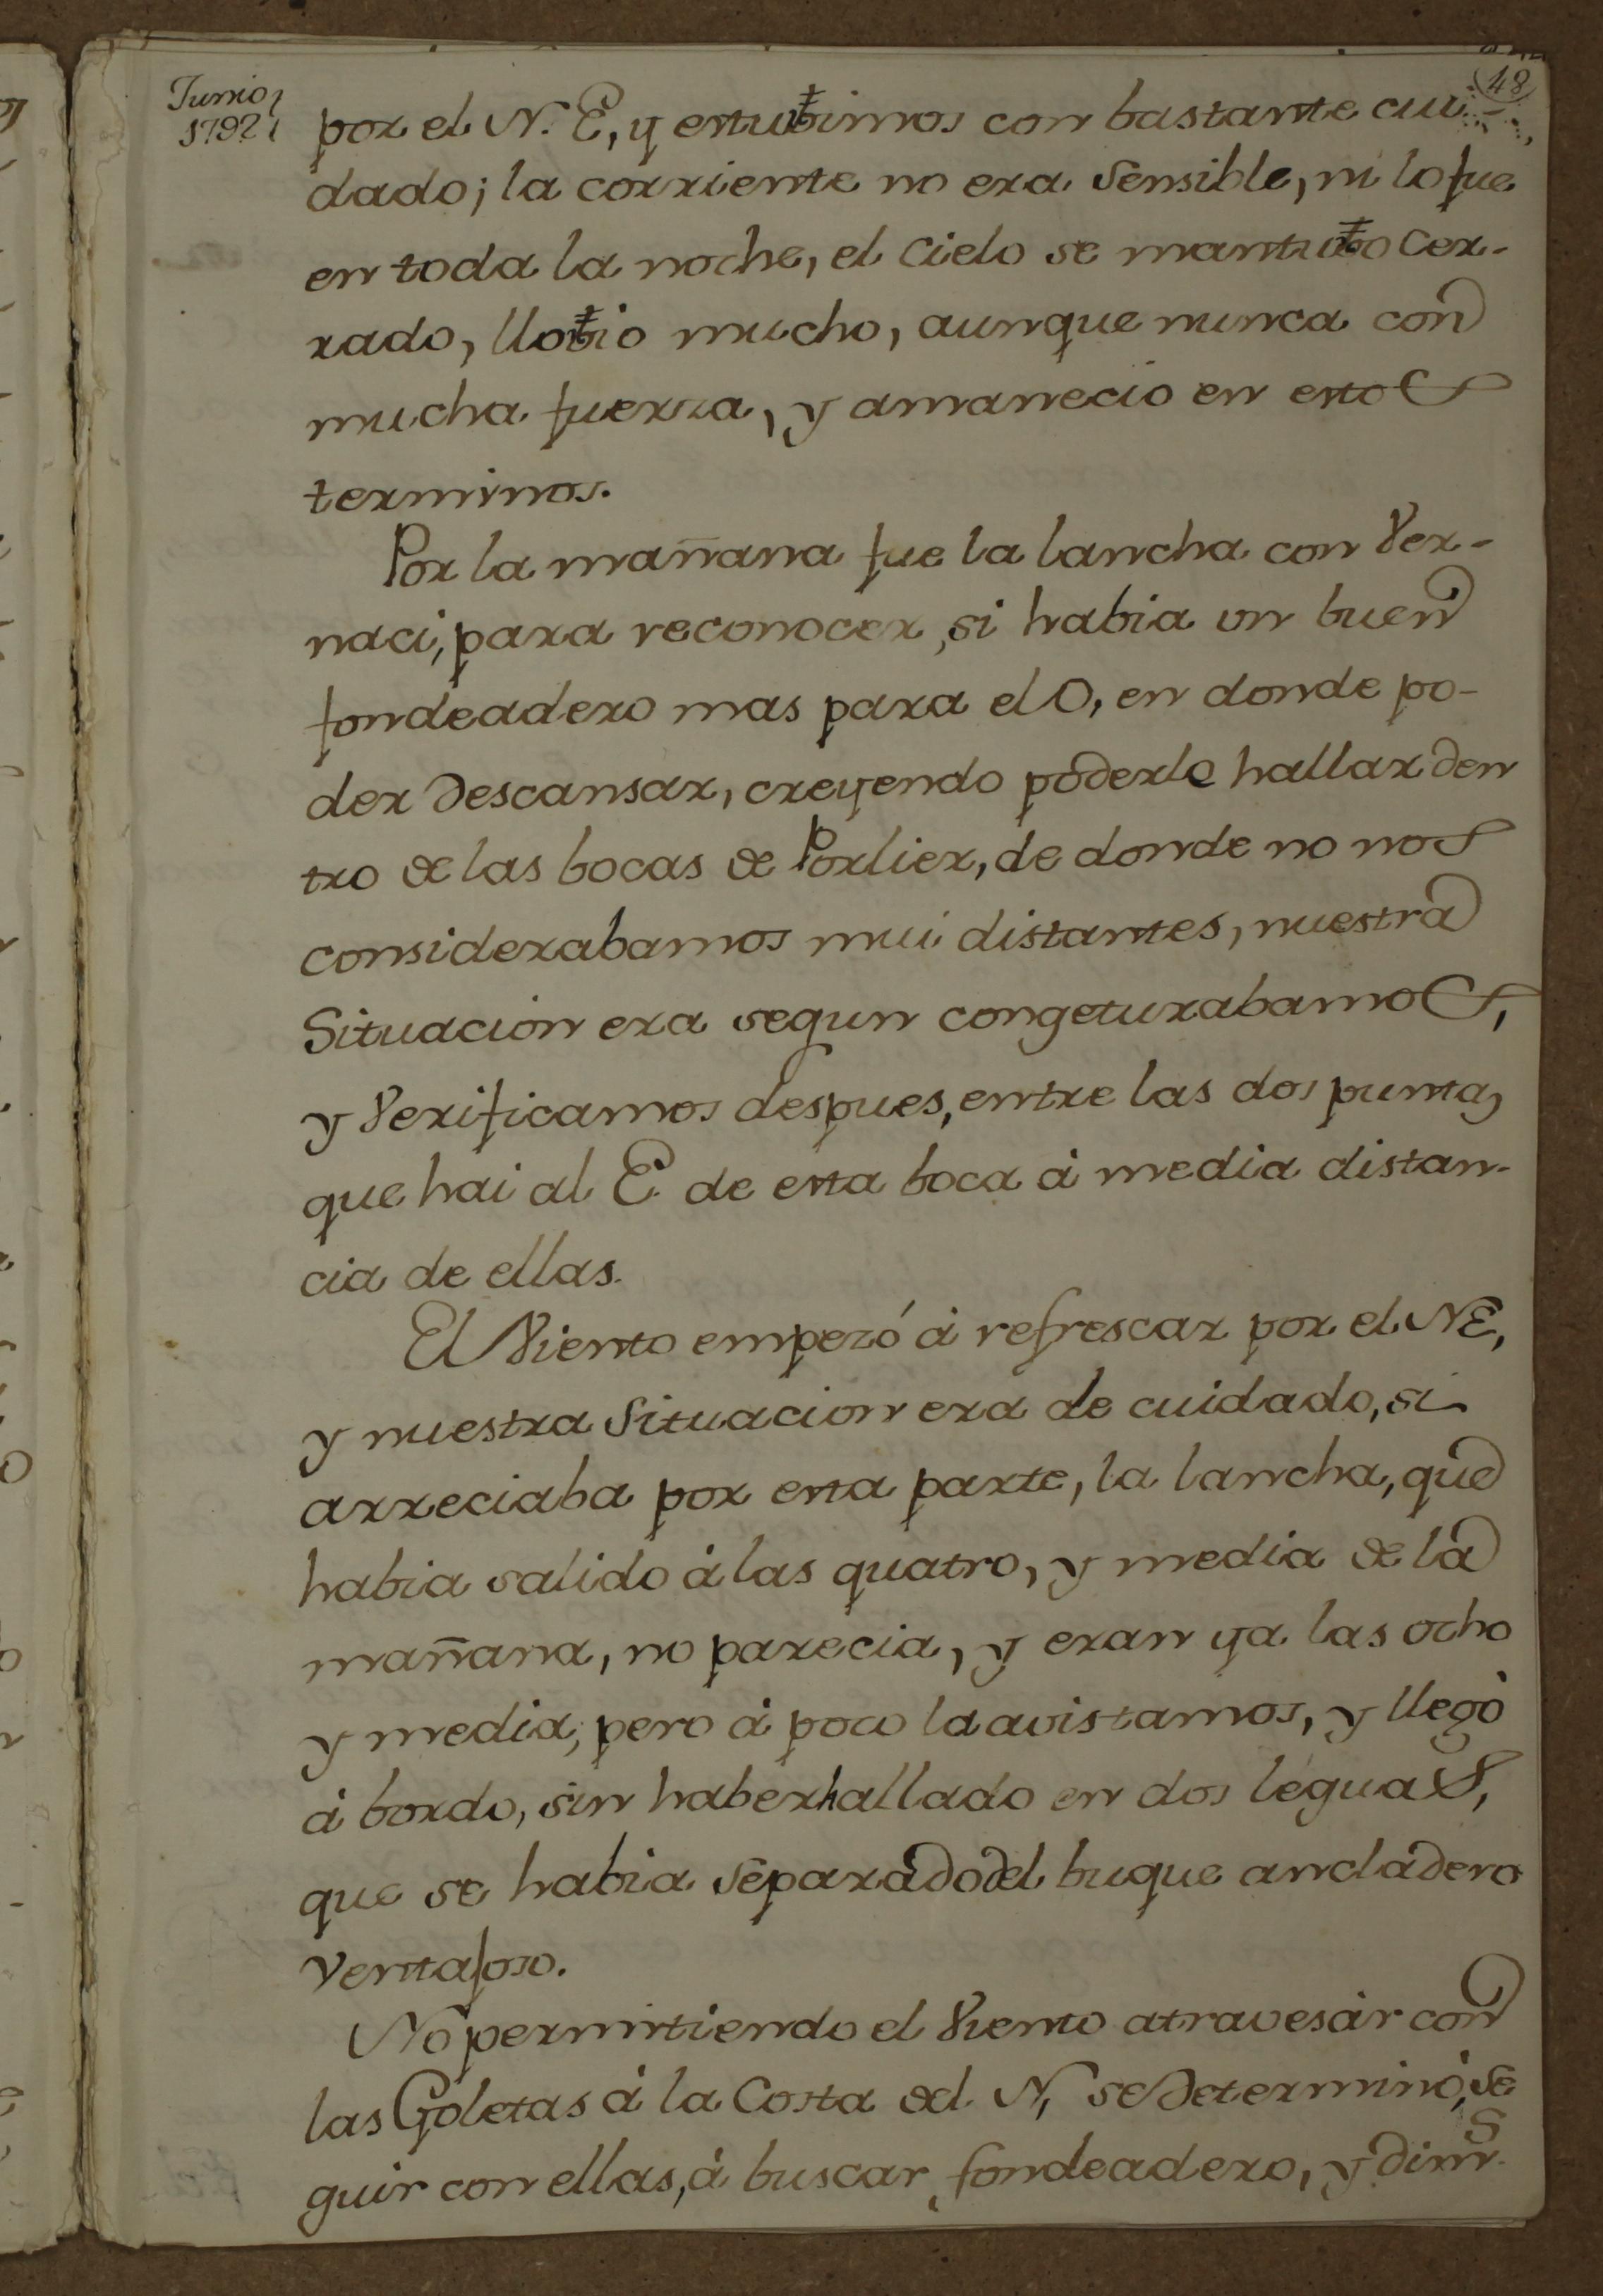 48
Junio
1792
por el N. E, y estubimos con bastante cui-
dado; la corriente no era sensible, ni lo fue
en toda la noche, el Cielo se mantubo Cer-
rado, llobio mucho, aunque nunca con
mucha fuerza, y amanecio en estos
terminos.
Por la mañana fue la lancha con Ver-
naci, para reconocer, si habia un buen
fondeadero mas para el O, en donde po-
der descansar, creyendo poderle hallar den
tro de las bocas de Porlier, de donde no nos
considerabamos mui distantes, nuestra
Situacion era segun congeturabamos,
y Verificamos despues, entre las dos puntas
que hai al E. de esta boca á media distan-
cia de ellas.
El Viento empezó á refrescar por el NE,
y nuestra Situacion era de cuidado, si
arreciaba por esta parte, la lancha, que
habia salido á las quatro, y media de la
mañana, no parecia, y eran ya las ocho
y media; pero á poco la avistamos, y llegó
á bordo, sin haber hallado en dos leguas,
que se habia separado del buque ancladero
ventajoso.
No permitiendo el Viento atravesar con
las Goletas á la Costa del N, se determinó, se
guir con ellas, á buscar, fondeadero, y dims